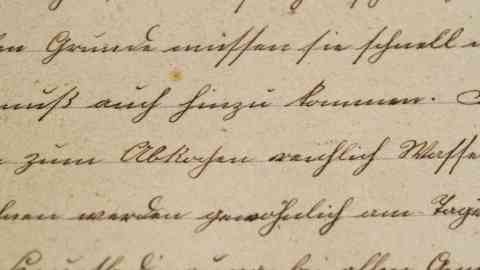 Grunde müssen sie schnell
muß auch hinzu kommen.
zum Abkochen reichlich Wasse
werden gewöhnlich am Tage